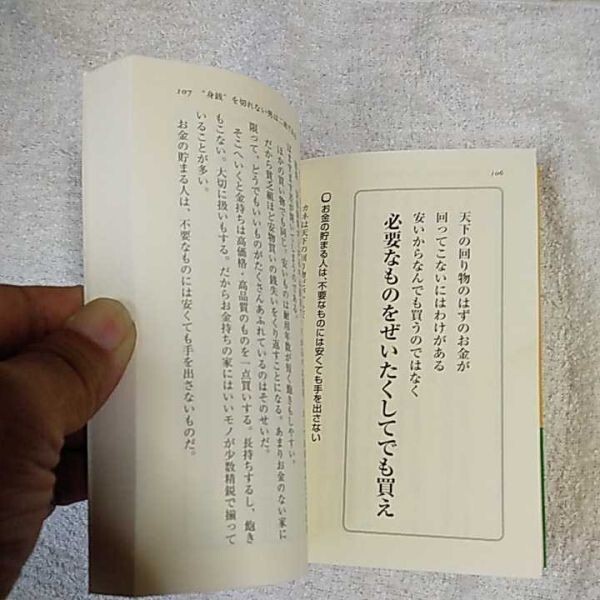 106
天下の回り物のはずのお金が
回ってこないにはわけがある
安いからなんでも買うのではなく
必要なものをぜいたくしてでも買え
お金の貯まる人は、不要なものには安くても手を出さない
カネは天下の回り
107 “身銭”を切れない男は二流で
ほかの買い物でも同じ。安いものは耐用年数が短く飽きもしやすい。
だから貧乏組ほど安物買いの銭失いをくり返すことになる。あまりお金のない家に
限って、どうでもいいものがたくさんあふれているのはそのせいだ。
そこへいくと金持ちは高価格・高品質のものを一点買いする。長持ちするし、飽き
もこない。大切に扱いもする。だからお金持ちの家にはいいモノが少数精鋭で揃って
いることが多い。
お金の貯まる人は、不要なものには安くても手を出さないものだ。